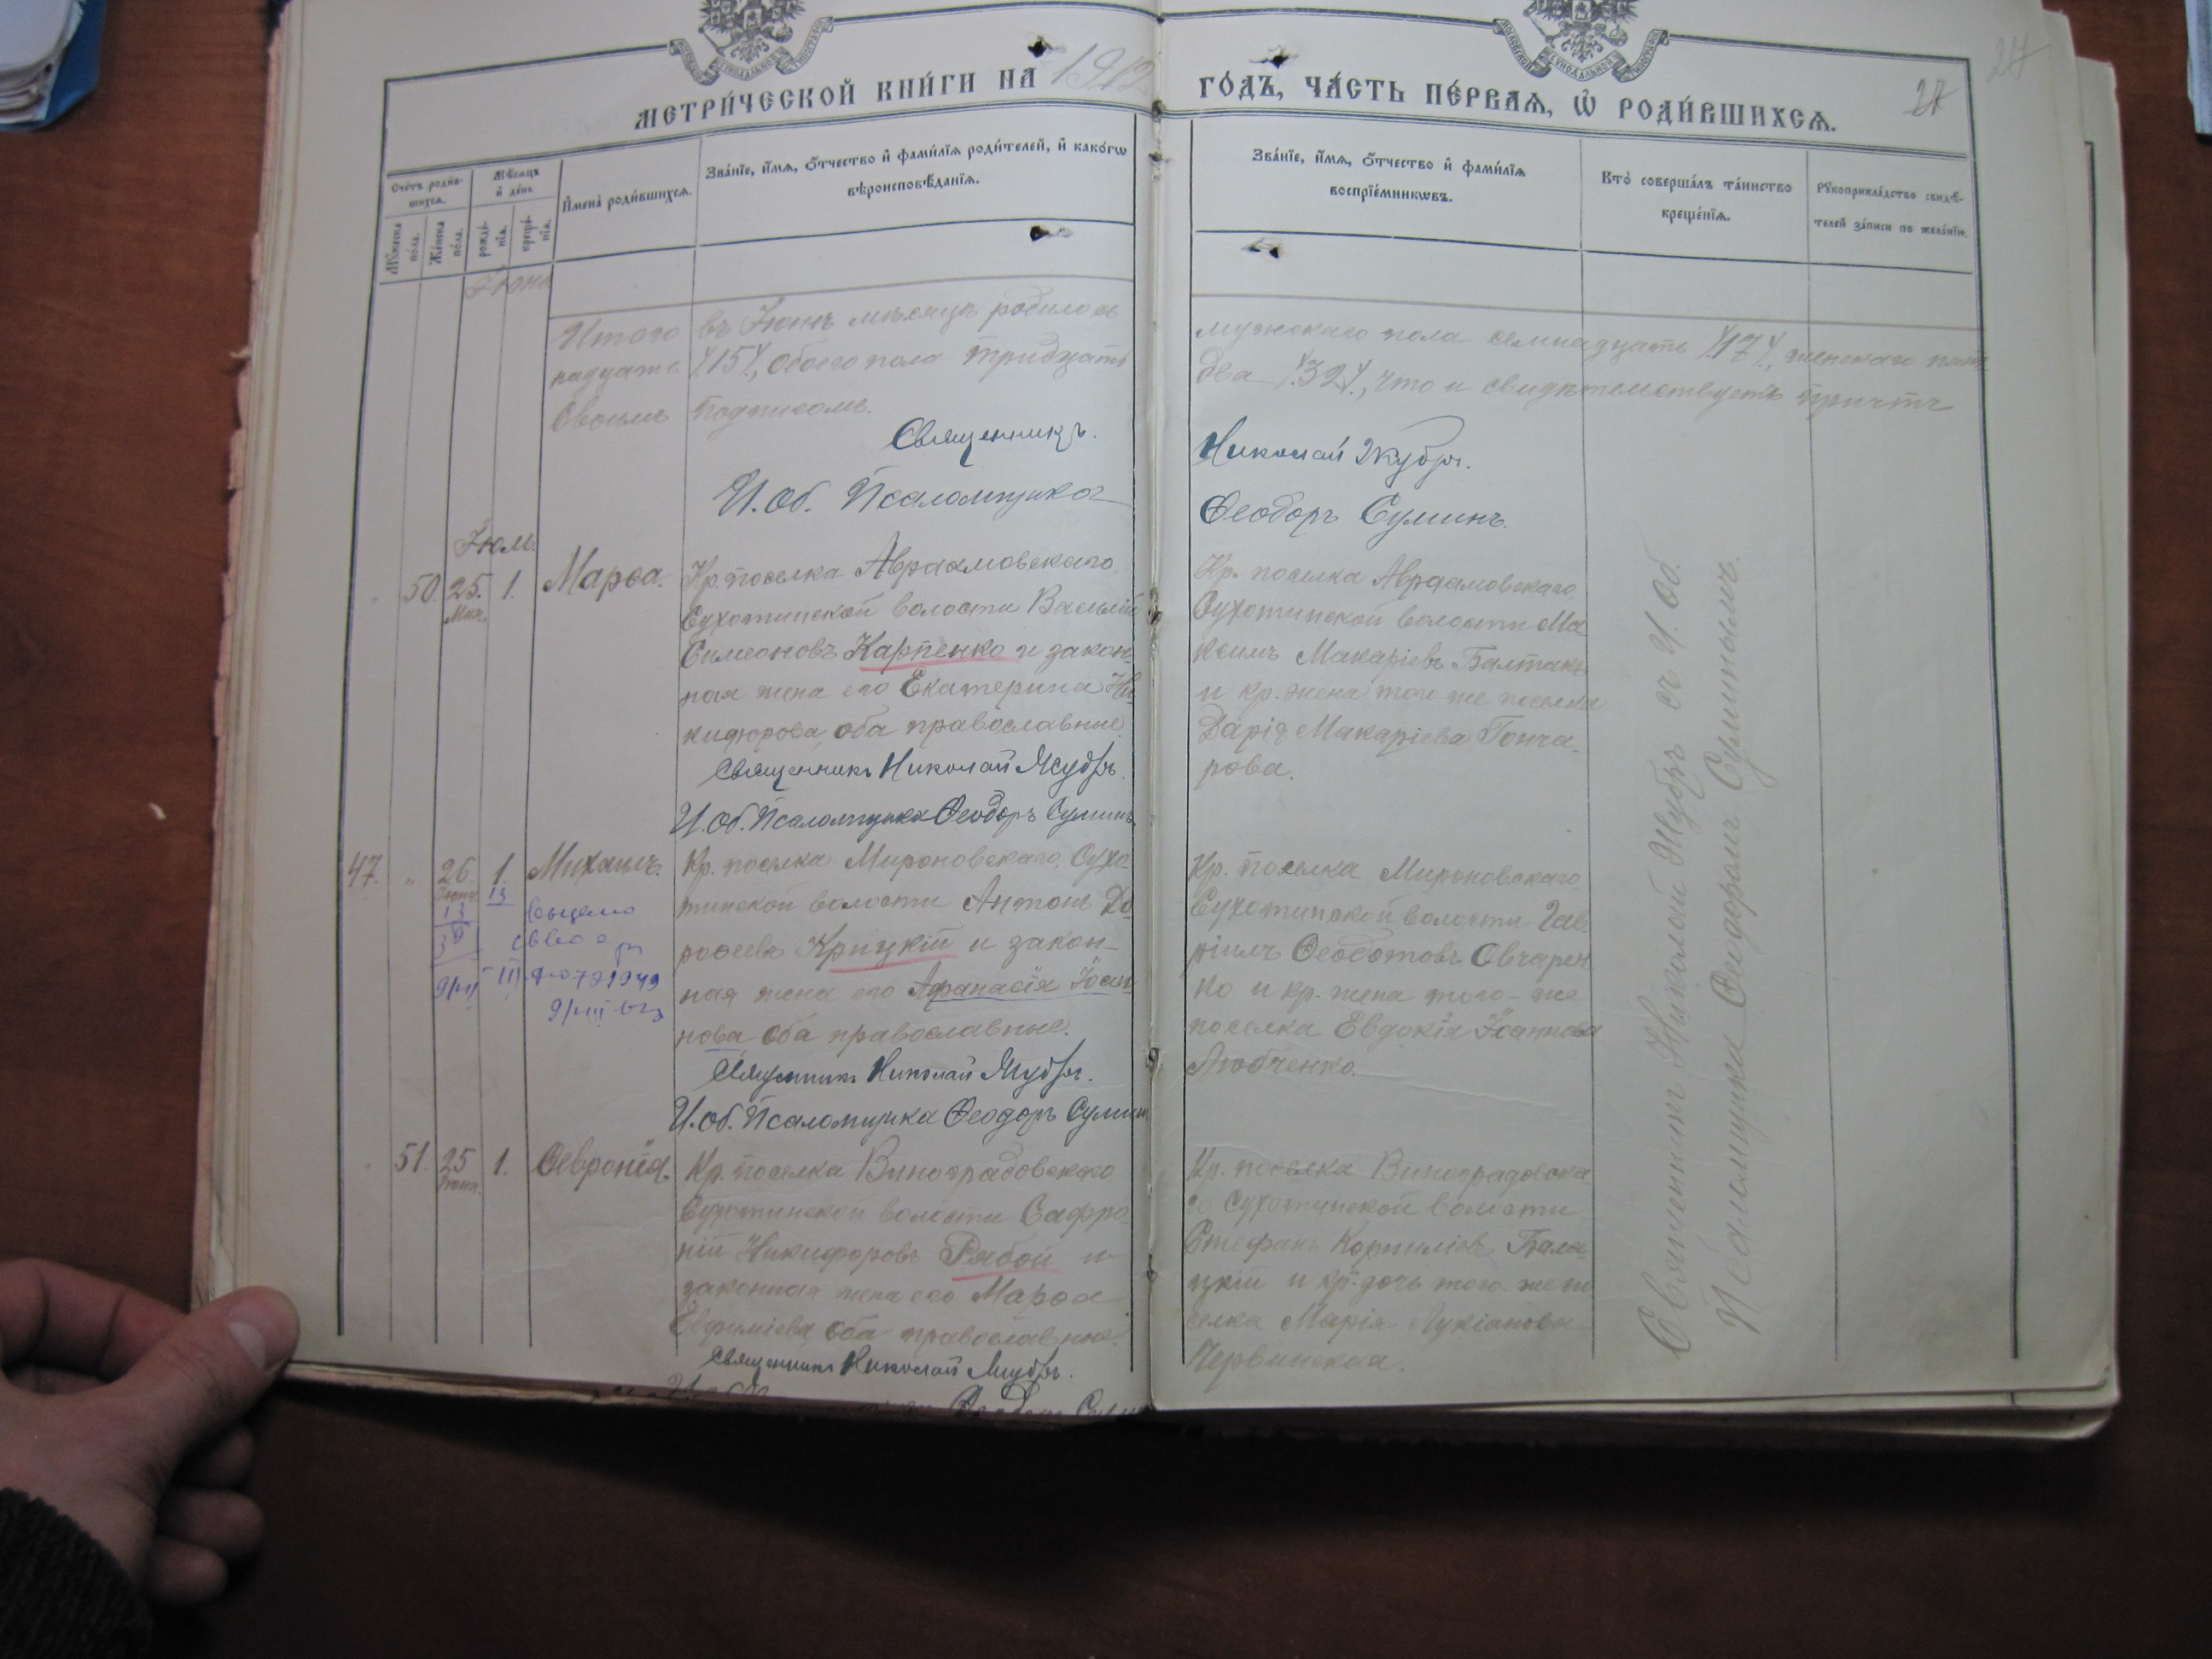 МЕТРИ́ЧЕСКОЙ КНИ́ГИ НА 1912 ГО́ДЪ, ЧА́СТЬ ПЕ́РВАЯ, Ѡ҆ РОДИ́ВШИХСЯ.
27
27
Сче́тъ роди́в-
шихся.
Мꙋ́жеска по́ла.
Же́нска по́ла.
Мѣ́сяцъ и҆ де́нь
рожде́-
нїя.
креще́-
нїя.
И҆мена̀ роди́вшихся.
Зва́нїе, и҆́мя, ѻ҆́тчество и҆ фами́лїя роди́телей, и҆ како́гѡ
вѣроисповѣ́данїя.
Зва́нїе, и҆́мя, ѻ҆́тчество и҆ фами́лїя
воспрїе́мникѡвъ.
Кто̀ соверша́лъ та́инство
креще́нїя.
Рꙋкоприкла́дство свидѣ́-
телей за́писи по жела́нїю.
Іюнь
Итого въ Іюнѣ мѣсяцѣ родилось мужскаго пола семнадцать /17/, женскаго пят-
надцать /15/, обоего пола тридцать два /32/, что и свидѣтельствуетъ причтъ
своимъ подписомъ.
Священникъ Николай Жубръ.
И. Об. Псаломщика Ѳеодоръ Суминъ.
Іюль.
50. 25. 1. Марѳа.
Кр. поселка Авраамовскаго
Сухотинской волости Василій
Симеоновъ Карпенко и закон-
ная жена его Екатерина Ни-
кифорова, оба православные.
Священникъ Николай Жубръ.
И. Об. Псаломщика Ѳеодоръ Суминъ.
Кр. поселка Авраамовскаго
Сухотинской волости Ма-
ксимъ Макаріевъ Балтакъ
и кр. жена того же поселка
Дарія Макаріева Гонча-
рова.
47. " 26 1. Михаилъ.
Іюня
13 13
Кр. поселка Мироновскаго, Сухо-
тинской волости Антонъ До-
роѳеевъ Крицкій и закон-
ная жена его Афанасія Іоан-
нова оба православные.
Священникъ Николай Жубръ.
И. Об. Псаломщика Ѳеодоръ Суминъ
Кр. поселка Мироновскаго
Сухотинской волости Гав-
ріилъ Ѳеодотовъ Овчарен-
ко и кр. жена того-же
поселка Евдокія Іоаннова
Любченко.
51. 25 1. Ѳевронія.
Іюня.
Кр. поселка Виноградовскаго
Сухотинской волости Сафро-
ній Никифоровъ Рябой и
законная жена его Марѳа
Евфиміева, оба православные.
Священникъ Николай Жубръ.
Кр. поселка Виноградовска-
го Сухотинской волости
Стефанъ Корниліевъ Бала-
цкій и кр. дочь того же по-
селка Марія Лукіанова
Червинская.
Священникъ Николай Жубръ съ И. Об.
Псаломщика Ѳеодоромъ Суминымъ.